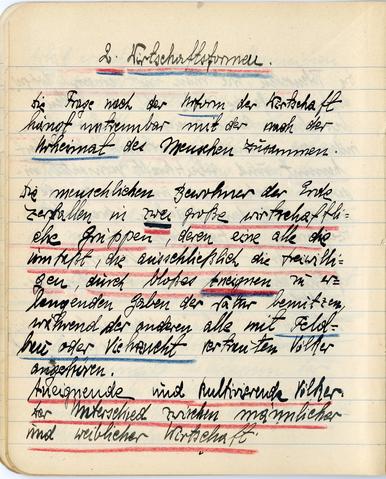 2. Wirtschaftsformen.
Die Frage nach der Urform der Wirtschaft
hängt untrennbar mit der nach der
Urheimat des Menschen zusammen.
Die menschlichen Bewohner der Erde
zerfallen in zwei große wirtschaftli-
che Gruppen, deren eine alle die
umfaßt, die ausschließlich die freiwilli-
gen, durch bloßes Aneignen zu er-
langenden Gaben der Natur benützen,
während der anderen alle mit Feld-
bau oder Viehzucht vertrauten Völker
angehören.
Aneignende und kultivierende Völker.
Der Unterschied zwischen männlicher
und weiblicher Wirtschaft.